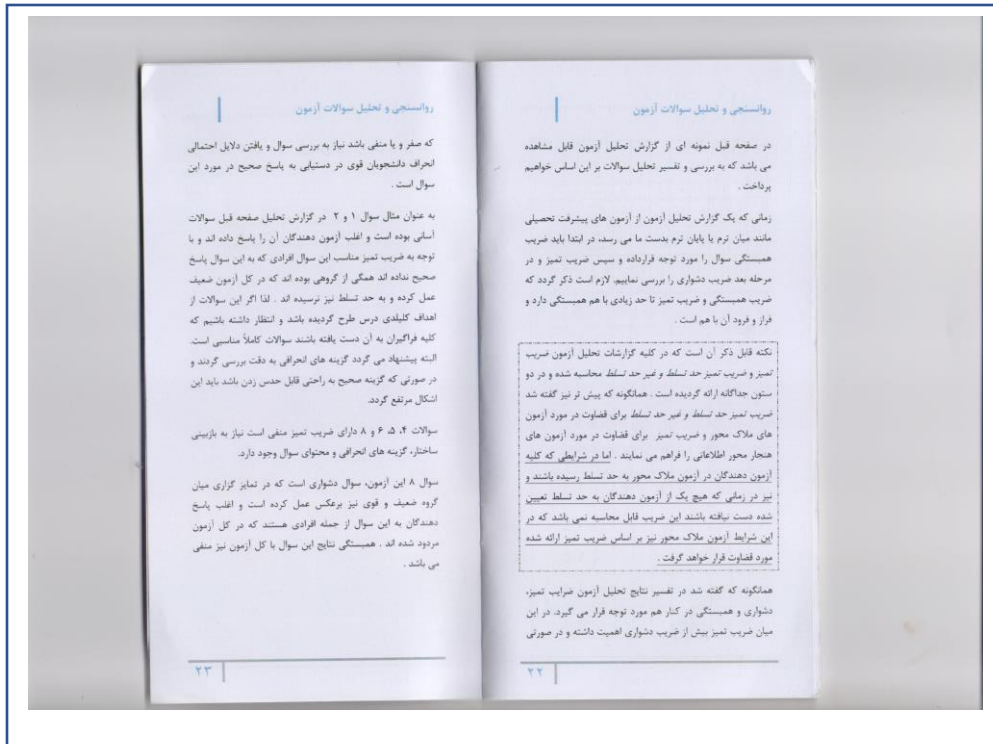 روانسنجی و تحلیل سوالات آزمون
در صفحه قبل نمونه ای از گزارش تحلیل آزمون قابل مشاهده
می باشد که به بررسی و تفسیر تحلیل سوالات بر این اساس خواهیم
پرداخت .
زمانی که یک گزارش تحلیل آزمون از آزمون های پیشرفت تحصیلی
مانند میان ترم یا پایان ترم بدست ما می رسد، در ابتدا باید ضریب
همبستگی سوال را مورد توجه قرارداده و سپس ضریب تمیز و در
مرحله بعد ضریب دشواری را بررسی نماییم. لازم است ذکر گردد که
ضریب همبستگی و ضریب تمیز تا حد زیادی با هم همبستگی دارد و
فراز و فرود آن با هم است .
نکته قابل ذکر آن است که در کلیه گزارشات تحلیل آزمون ضریب
تمیز و ضریب تمیز حد تسلط و غیر حد تسلط محاسبه شده و در دو
ستون جداگانه ارائه گردیده است . همانگونه که پیش تر نیز گفته شد
ضریب تمیز حد تسلط و غیر حد تسلط برای قضاوت در مورد آزمون
های ملاک محور و ضریب تمیز برای قضاوت در مورد آزمون های
هنجار محور اطلاعاتی را فراهم می نمایند . اما در شرایطی که کلیه
آزمون دهندگان در آزمون ملاک محور به حد تسلط رسیده باشند و
نیز در زمانی که هیچ یک از آزمون دهندگان به حد تسلط تعیین
شده دست نیافته باشند این ضریب قابل محاسبه نمی باشد که در
این شرایط آزمون ملاک محور نیز بر اساس ضریب تمیز ارائه شده
مورد قضاوت قرار خواهد گرفت .
همانگونه که گفته شد در تفسیر نتایج تحلیل آزمون ضرایب تمیز،
دشواری و همبستگی در کنار هم مورد توجه قرار می گیرد. در این
میان ضریب تمیز بیش از ضریب دشواری اهمیت داشته و در صورتی
۲۲
روانسنجی و تحلیل سوالات آزمون
که صفر و یا منفی باشد نیاز به بررسی سوال و یافتن دلایل احتمالی
انحراف دانشجویان قوی در دستیابی به پاسخ صحیح در مورد این
سوال است .
به عنوان مثال سوال ۱ و ۲ در گزارش تحلیل صفحه قبل سوالات
آسانی بوده است و اغلب آزمون دهندگان آن را پاسخ داده اند و با
توجه به ضریب تمیز مناسب این سوال افرادی که به این سوال پاسخ
صحیح نداده اند همگی از گروهی بوده اند که در کل آزمون ضعیف
عمل کرده و به حد تسلط نیز نرسیده اند . لذا اگر این سوالات از
اهداف کلیلدی درس طرح گردیده باشد و انتظار داشته باشیم که
کلیه فراگیران به آن دست یافته باشند سوالات کاملاً مناسبی است.
البته پیشنهاد می گردد گزینه های انحرافی به دقت بررسی گردند و
در صورتی که گزینه صحیح به راحتی قابل حدس زدن باشد باید این
اشکال مرتفع گردد.
سوالات ۴، ۵، ۶ و ۸ دارای ضریب تمیز منفی است نیاز به بازبینی
ساختار، گزینه های انحرافی و محتوای سوال وجود دارد.
سوال ۸ این آزمون، سوال دشواری است که در تمایز گزاری میان
گروه ضعیف و قوی نیز برعکس عمل کرده است و اغلب پاسخ
دهندگان به این سوال از جمله افرادی هستند که در کل آزمون
مردود شده اند . همبستگی نتایج این سوال با کل آزمون نیز منفی
می باشد .
۲۳